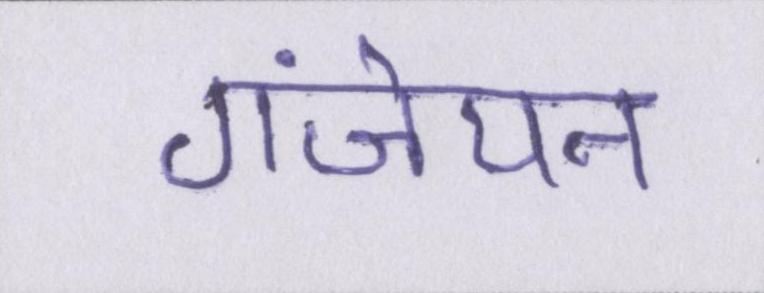 गंजेपन